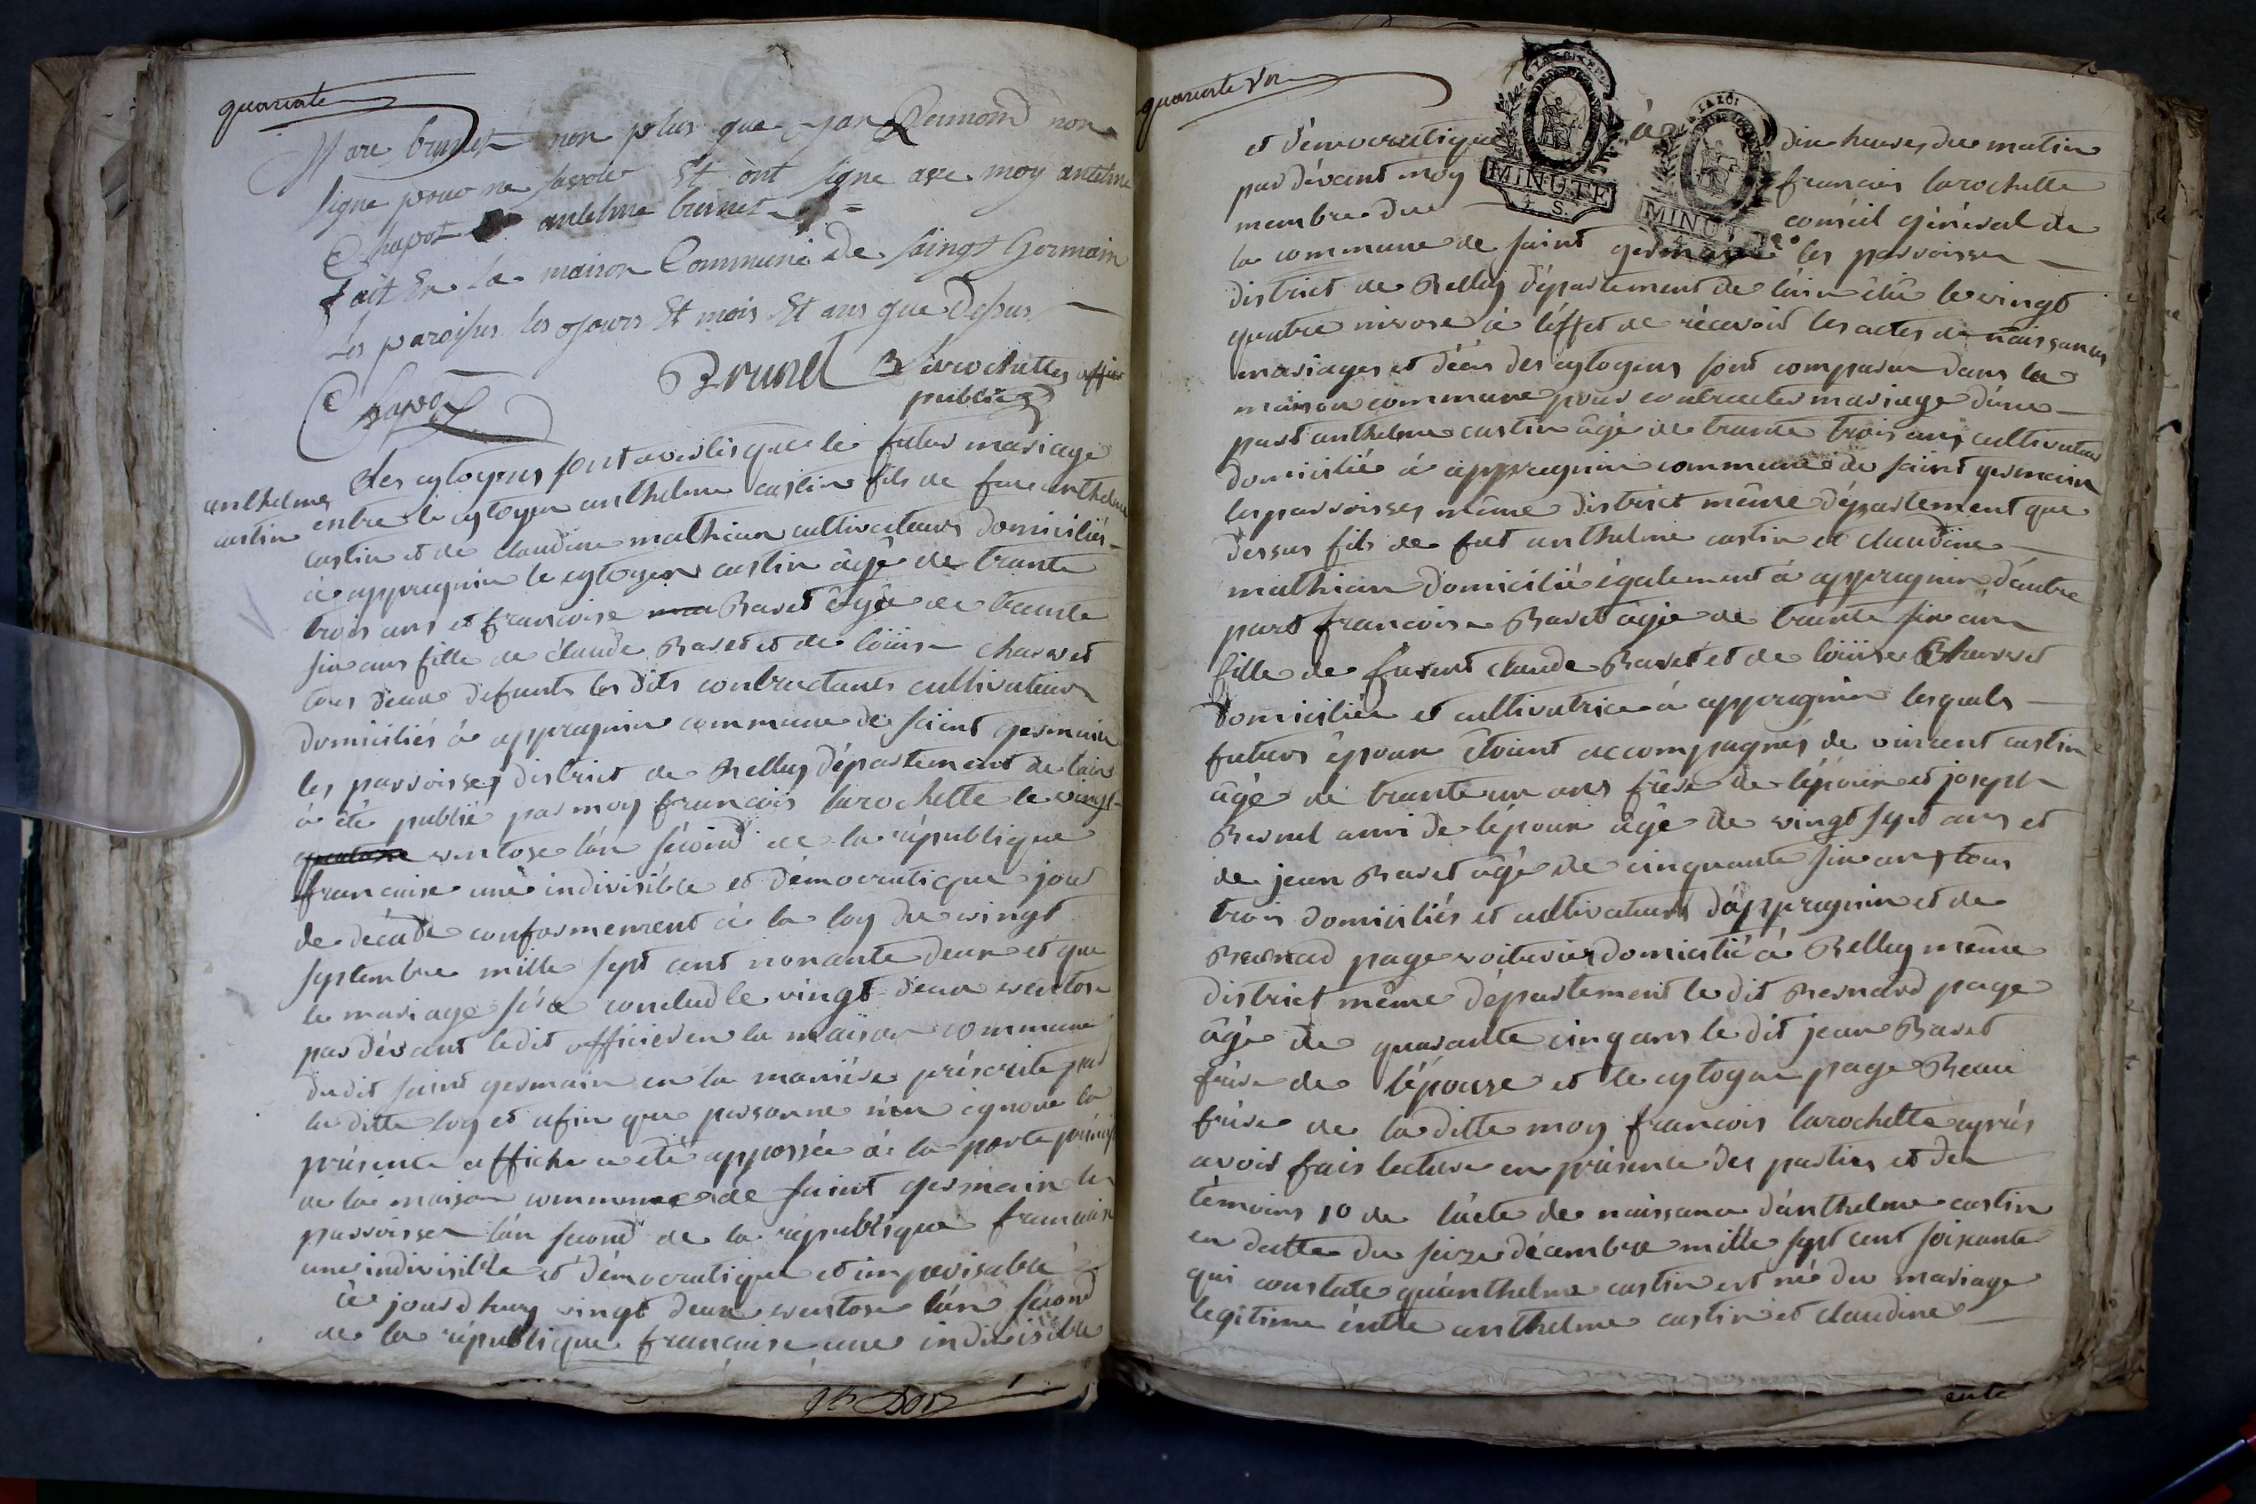 quarante
Marc brunet non plus que jan Remond non
signe pour ne savoir Et ònt signe avec moy antelme
Chapot antelme brunet
fait En la maison Commune De saingt Germain
Les paroisses les Jours Et mois Et ans que Dessus
Brunet
larochette officier
public
Chapot
anthelme
castin
des cytoyens sont avertis que le futur mariage
entre le cytoyen anthelme castin fils de feu anthelme
castin et de claudine mathian cultivateurs domiciliés
à appregnin le cytoyen castin âgé de trante
trois ans et francoise Bavet âgée de trante
six ans fille de claude Bavet et de loüise charvet
tous deux defunts les dits contractants cultivateurs
domiciliés à appregnin commune de saint germain
les parroisses district de Belley département de l'ain
à été publié par moy francois larochette le vingt
ventose l'an sécond de la république
francaise une indivisible et démocratique jour
de décade conformement à la loy du vingt
septembre mille sept cent nonante deux et que
le mariage séra conclud le vingt deux ventose
par dévant ledit officier en la maison commune
dudit saint germain en la maniére préscrite par
la ditte loy et afin que personne n'en ignore la
présente affiche a été apposée à la porte
de la maison commune de saint germain les
parroisses l'an sécond de la république francaise
une indivisible et démocratique et
ce jourd'huy vingt deux ventose l'an sécond
de la république francaise une indivisible
quarante un
LA LOI
MINUTE
4 S.
LA LOI
MINUT
et démocratique à dix heures du matin
par dévant moy francois larochette
membre du conséil général de
la commune de saint germain les parroisses
district de Belley département de l'ain élû le vingt
quatre nivose à l'éffet de récevoir les actes de naissances
mariages et décés des cytoyens sont comparu dans la
maison commune pour contracter mariage d'une
part anthelme castin âgé de trante trois ans cultivateur
domicilié à appregnin commune de saint germain
les parroisses même district même département que
dessus fils de fut anthelme castin et claudine
mathian domicilié également à appregnin d'autre
part francoise Bavet âgée de trante six ans
fille de furent claude Bavet et de loüise Charvet
domiciliée et cultivatrice à appregnin lesquels
futurs époux étoient accompagnés de vincent castin
âgé de trante un ans frére de l'époux et joseph
Brunet ami de l'époux âgé de vingt sept ans et
de jean Bavet âgé de cinquante six ans tous
trois domiciliés et cultivateurs d'appregnin et de
Bernard page voiturier domicilié à Belley même
district même département le dit Bernard page
âgé de quarante cinq ans le dit jean Bavet
frére de l'épouse et le cytoyen page Beau
frére de la ditte moy francois larochette aprés
avoir fais lecture en présence des parties et des
témoins 1o de l'acte de naissance d'anthelme castin
en datte du seize décembre mille sept cent soixante
qui constate qu'anthelme castin est né du mariage
legitime éntre anthelme castin et claudine